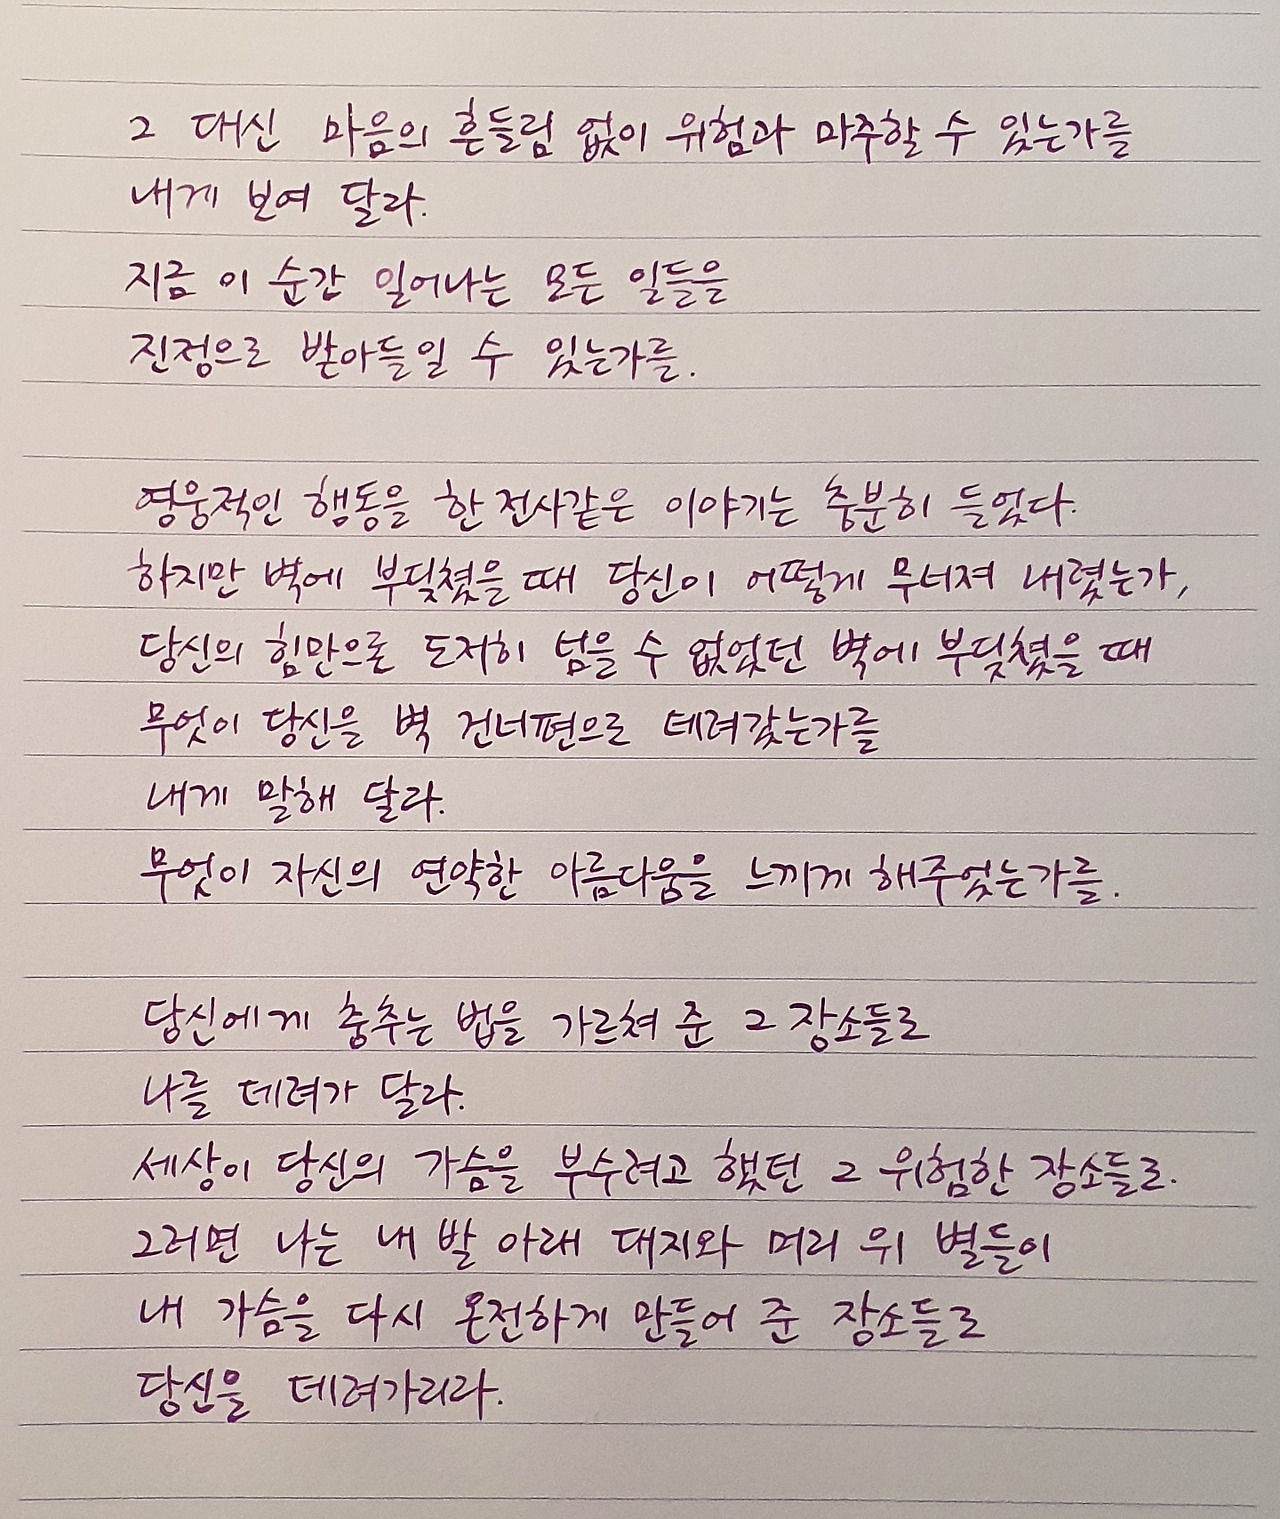 그 대신 마음의 흔들림 없이 위험과 마주할 수 있는가를
내게 보여 달라.
지금 이 순간 일어나는 모든 일들을
진정으로 받아들일 수 있는가를.
영웅적인 행동을 한 전사같은 이야기는 충분히 들었다.
하지만 벽에 부딪쳤을 때 당신이 어떻게 무너져 내렸는가,
당신의 힘만으로 도저히 넘을 수 없었던 벽에 부딪쳤을 때
무엇이 당신을 벽 건너편으로 데려갔는가를
내게 말해 달라.
무엇이 자신의 연약한 아름다움을 느끼게 해주었는가를.
당신에게 춤추는 법을 가르쳐 준 그 장소들로
나를 데려가 달라.
세상이 당신의 가슴을 부수려고 했던 그 위험한 장소들로.
그러면 나는 내 발 아래 대지와 머리 위 별들이
내 가슴을 다시 온전하게 만들어 준 장소들로
당신을 데려가리라.